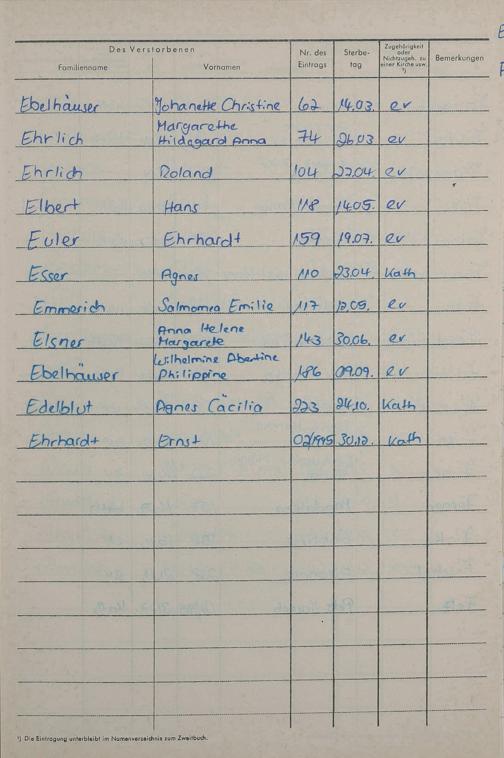 Des Verstorbenen
Familienname Vornamen Nr. des Eintrags Sterbe-tag Zugehörigkeit oder Nichtzugeh. zu einer Kirche usw. ¹) Bemerkungen
Ebelhäuser Johanette Christine 62 14.03. ev
Margarethe
Ehrlich Hildegard Anna 74 26.03 ev
Ehrlich Roland 104 22.04. ev
Elbert Hans 118 14.05. ev
Euler Ehrhardt 159 19.07. ev
Esser Agnes 110 23.04. Kath
Emmerich Salmomea Emilie 117 12.05. ev
Anna Helene
Elsner Margarete 143 30.06. ev
Wilhelmine
Ebelhäuser Philippine 186 09.09. ev
Edelblut Agnes Cäcilia 223 24.10. Kath
Ehrhardt Ernst 02/1995 30.12. Kath
¹) Die Eintragung unterbleibt im Namenverzeichnis zum Zweitbuch.